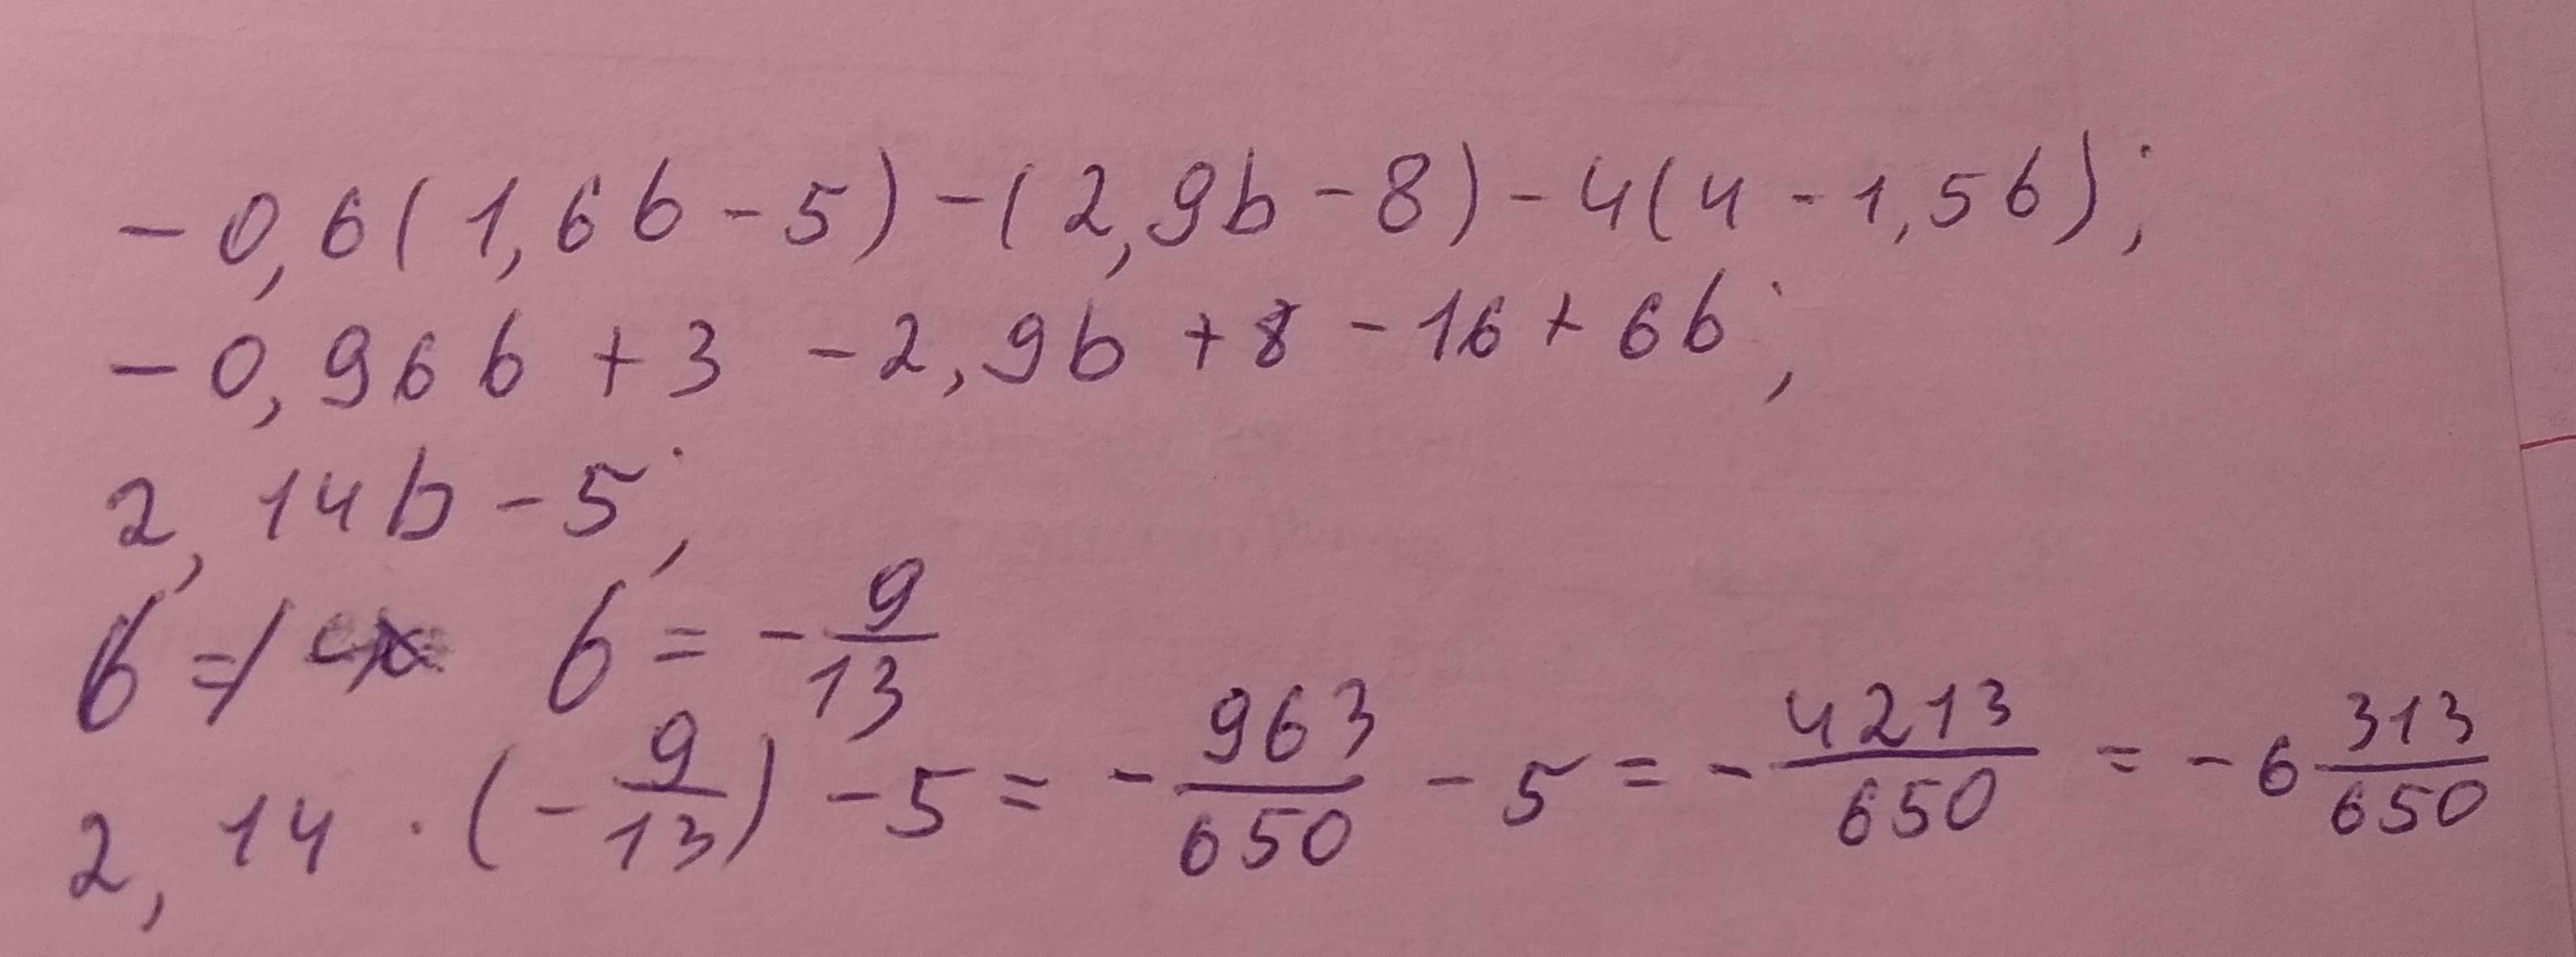 -0,6(1,6b-5)-(2,9b-8)-4(4-1,5b);
-0,96b+3-2,9b+8-16+6b;
2,14b-5;
b= b=-9/13
2,14·(-9/13)-5=-963/650-5=-4213/650=-6 313/650